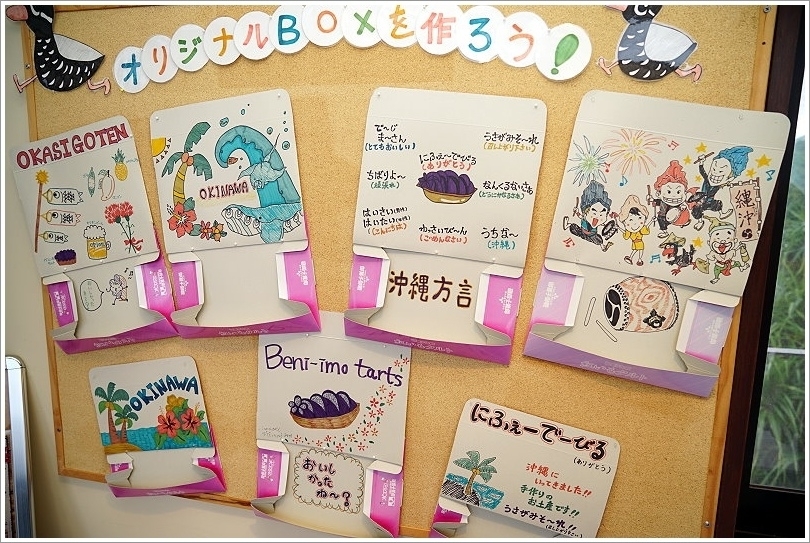 オリジナルBOXを作ろう!
OKASI GOTEN
OKINAWA
で〜じ
ま〜さん
(とてもおいしい)
うさがみそ〜れ
(召し上がり下さい)
にふぇ〜でーびる
(ありがとう)
ちばりよ〜
(頑張れ)
なんくるないさぁ
はいさい
はいたい
(こんにちは)
わっさいび〜ん
(ごめんなさい)
うちな〜
(沖縄)
沖縄方言
沖縄
OKINAWA
Beni-imo tarts
おいし
かった
ね〜?
にふぇーでーびる
(ありがとう)
沖縄に
いってきました!!
手作りの
お土産です!!
うさがみそ〜れ!!